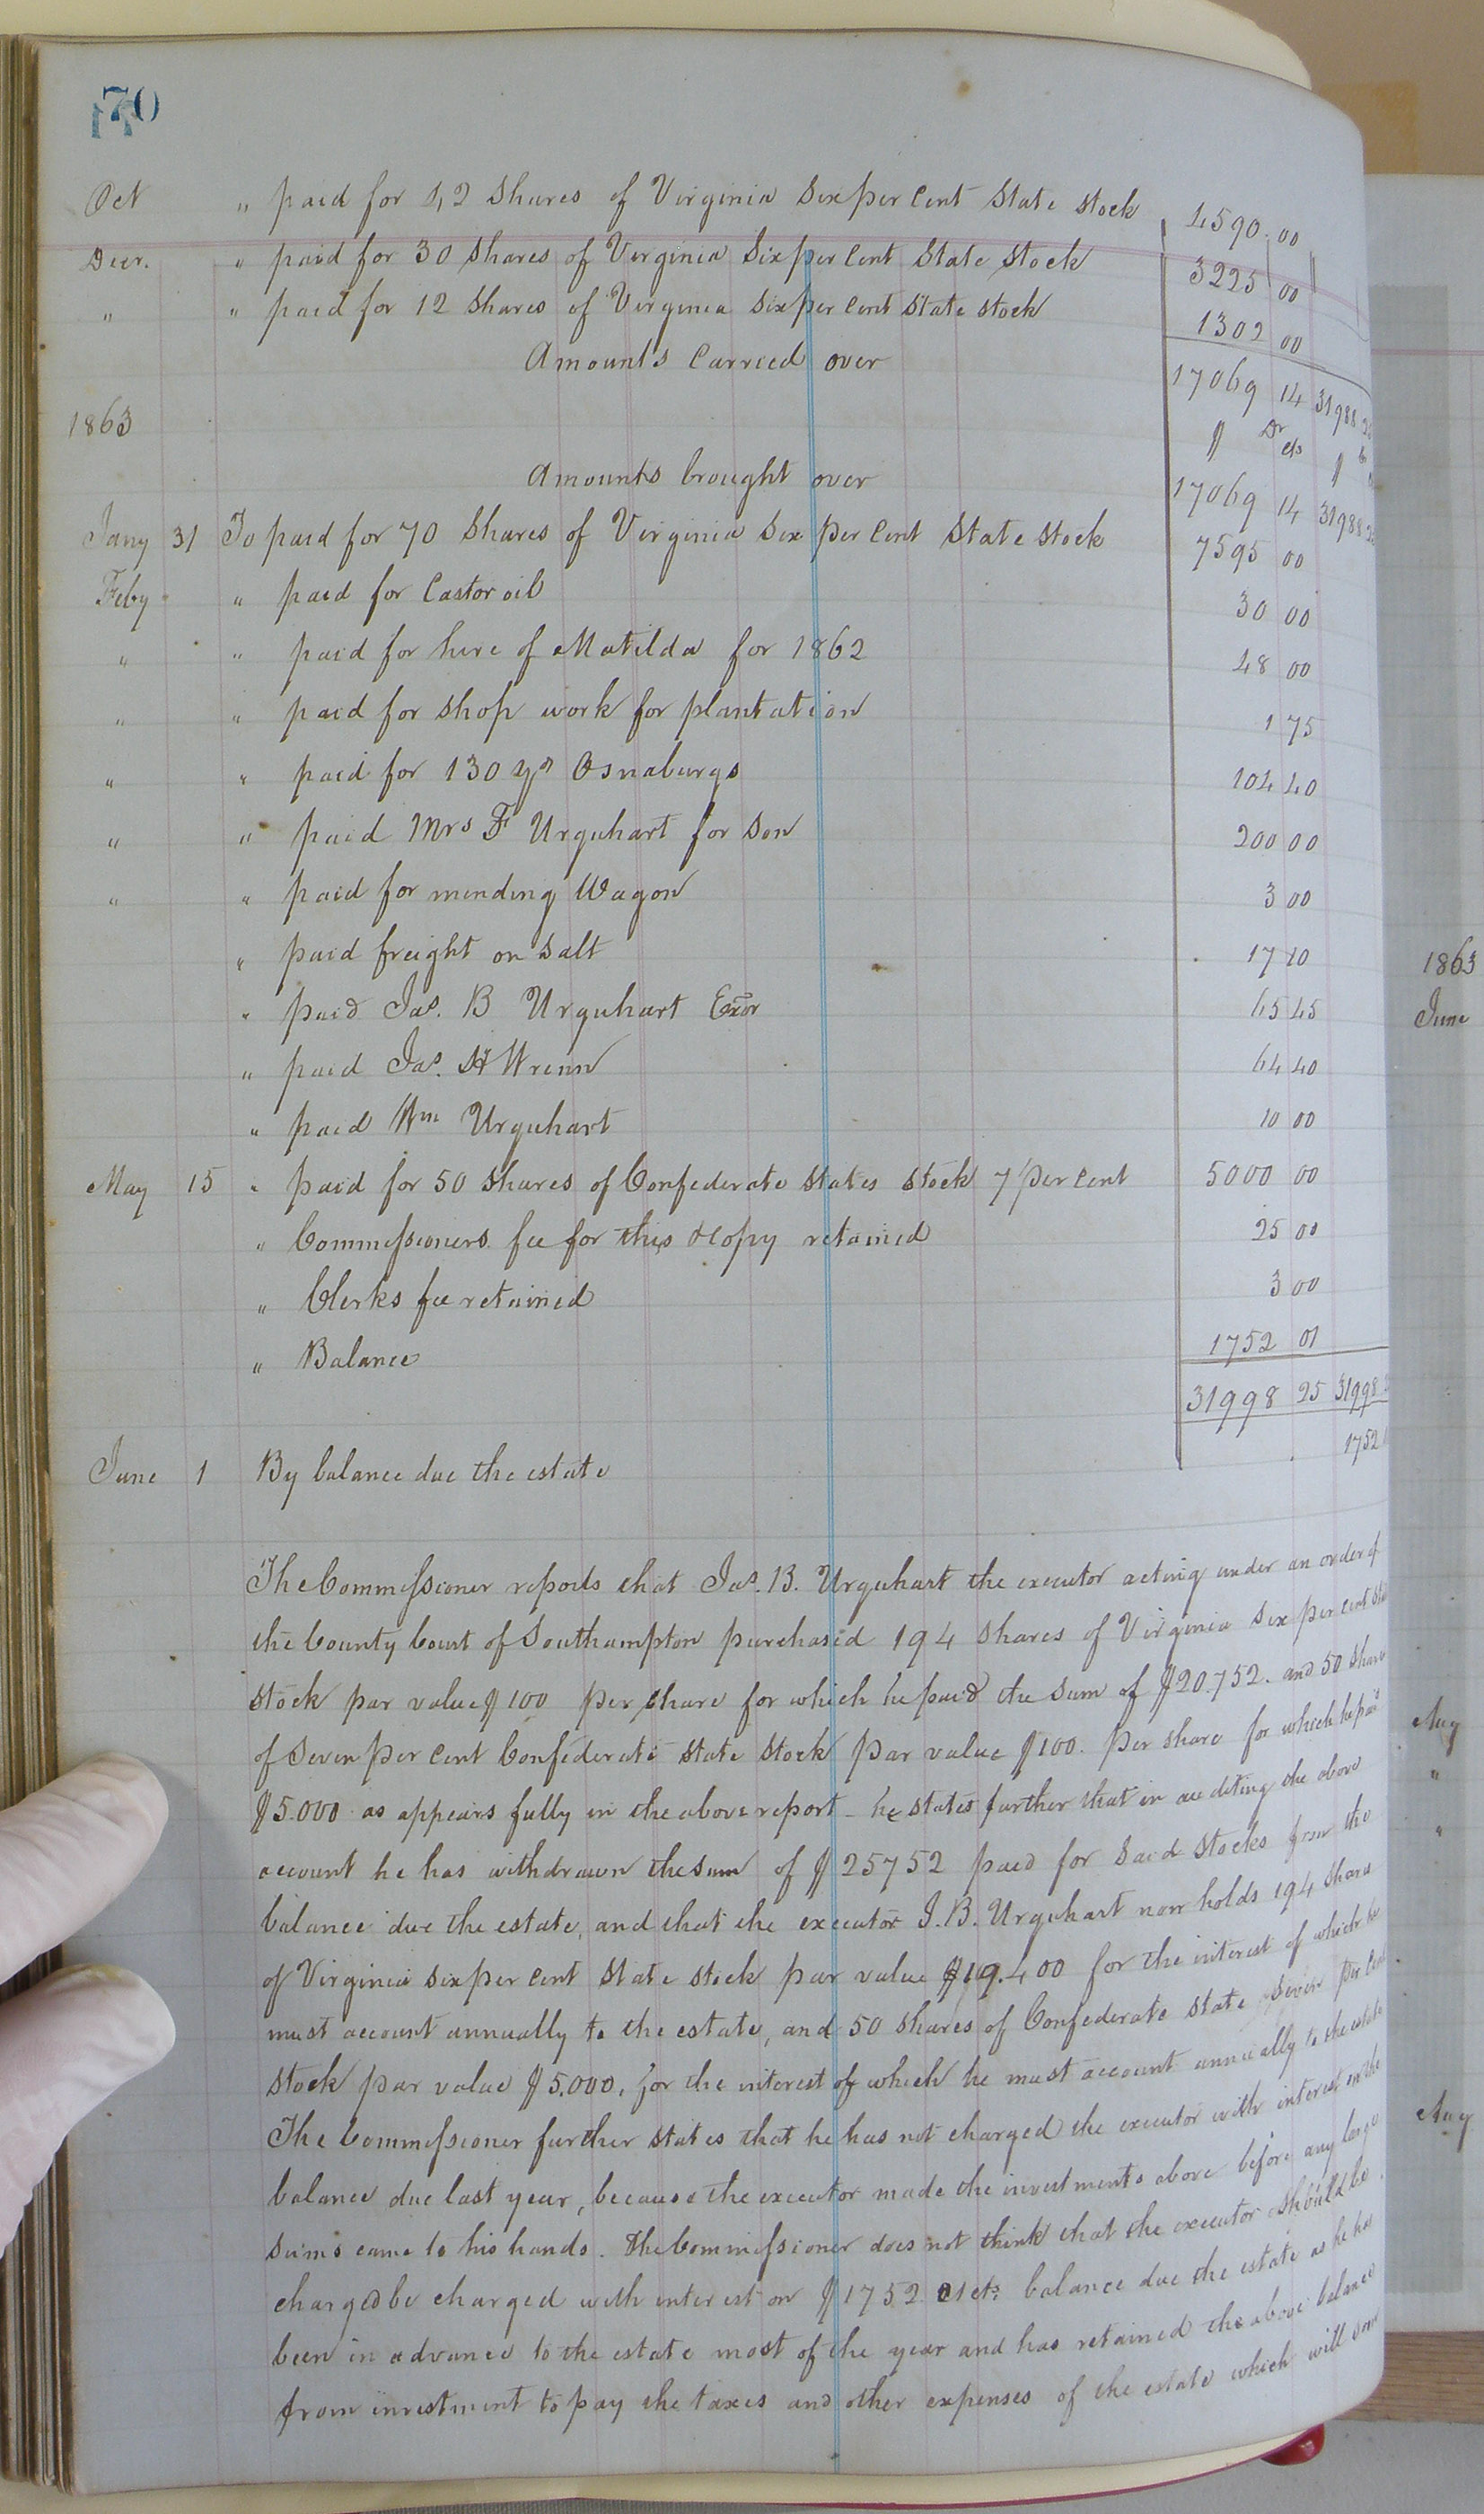 70
Oct " paid for 42 Shares of Virginia Six per Cent State Stock 4590.00
Decr. " paid for 30 Shares of Virginia Six per Cent State Stock 3225 00
" " paid for 12 Shares of Virginia Six per Cent State Stock 1302 00
Amounts Carried over 17069 14 31988
1863 $ Dr cts $
Amounts brought over 17069 14 31988
Jany 31 To paid for 70 Shares of Virginia Six per Cent State Stock 7595 00
Feby " paid for Castor oil 30 00
" " paid for hire of Matilda for 1862 48 00
" " paid for shop work for plantation 1 75
" " paid for 130 yds Osnaburgs 104 40
" " paid Mrs F Urquhart for Son 200 00
" " paid for mending Wagon 3 00
" paid freight on Salt 17 10
" paid Jas. B Urquhart Exor 65 45
" paid Jas. H Wrenn 64 40
" paid Wm Urquhart 10 00
May 15 " paid for 50 Shares of Confederate States Stock 7 per Cent 5000 00
" Commissioners fee for this & Copy retained 25 00
" Clerks fee retained 3 00
" Balance 1752 01
31998 25 31998
June 1 By balance due the estate 1752
The Commissioner reports that Jas. B. Urquhart the executor acting under an order of
the County Court of Southampton purchased 194 Shares of Virginia Six per Cent
Stock par value $100 per Share for which he paid the sum of $20.752. and 50 Shares
of Seven per Cent Confederate State Stock par value $100. per share for which he paid
$5.000 as appears fully in the above report - he states further that in auditing the above
account he has withdrawn the sum of $25752 paid for Said Stocks from the
balance due the estate, and that the executor J. B. Urquhart now holds 194 Shares
of Virginia Six per Cent State Stock par value $19.400 for the interest of which he
must account annually to the estate, and 50 Shares of Confederate State Seven per Cent
Stock par value $5.000, for the interest of which he must account annually to the estate
The Commissioner further states that he has not charged the executor with interest on the
balance due last year, because the executor made the investments above before any large
Sums came to his hands. The Commissioner does not think that the executor should be
charged be charged with interest on $1752 01 cts balance due the estate as he has
been in advance to the estate most of the year and has retained the above balance
from investment to pay the taxes and other expenses of the estate which will
1863
June
Aug
"
"
Aug